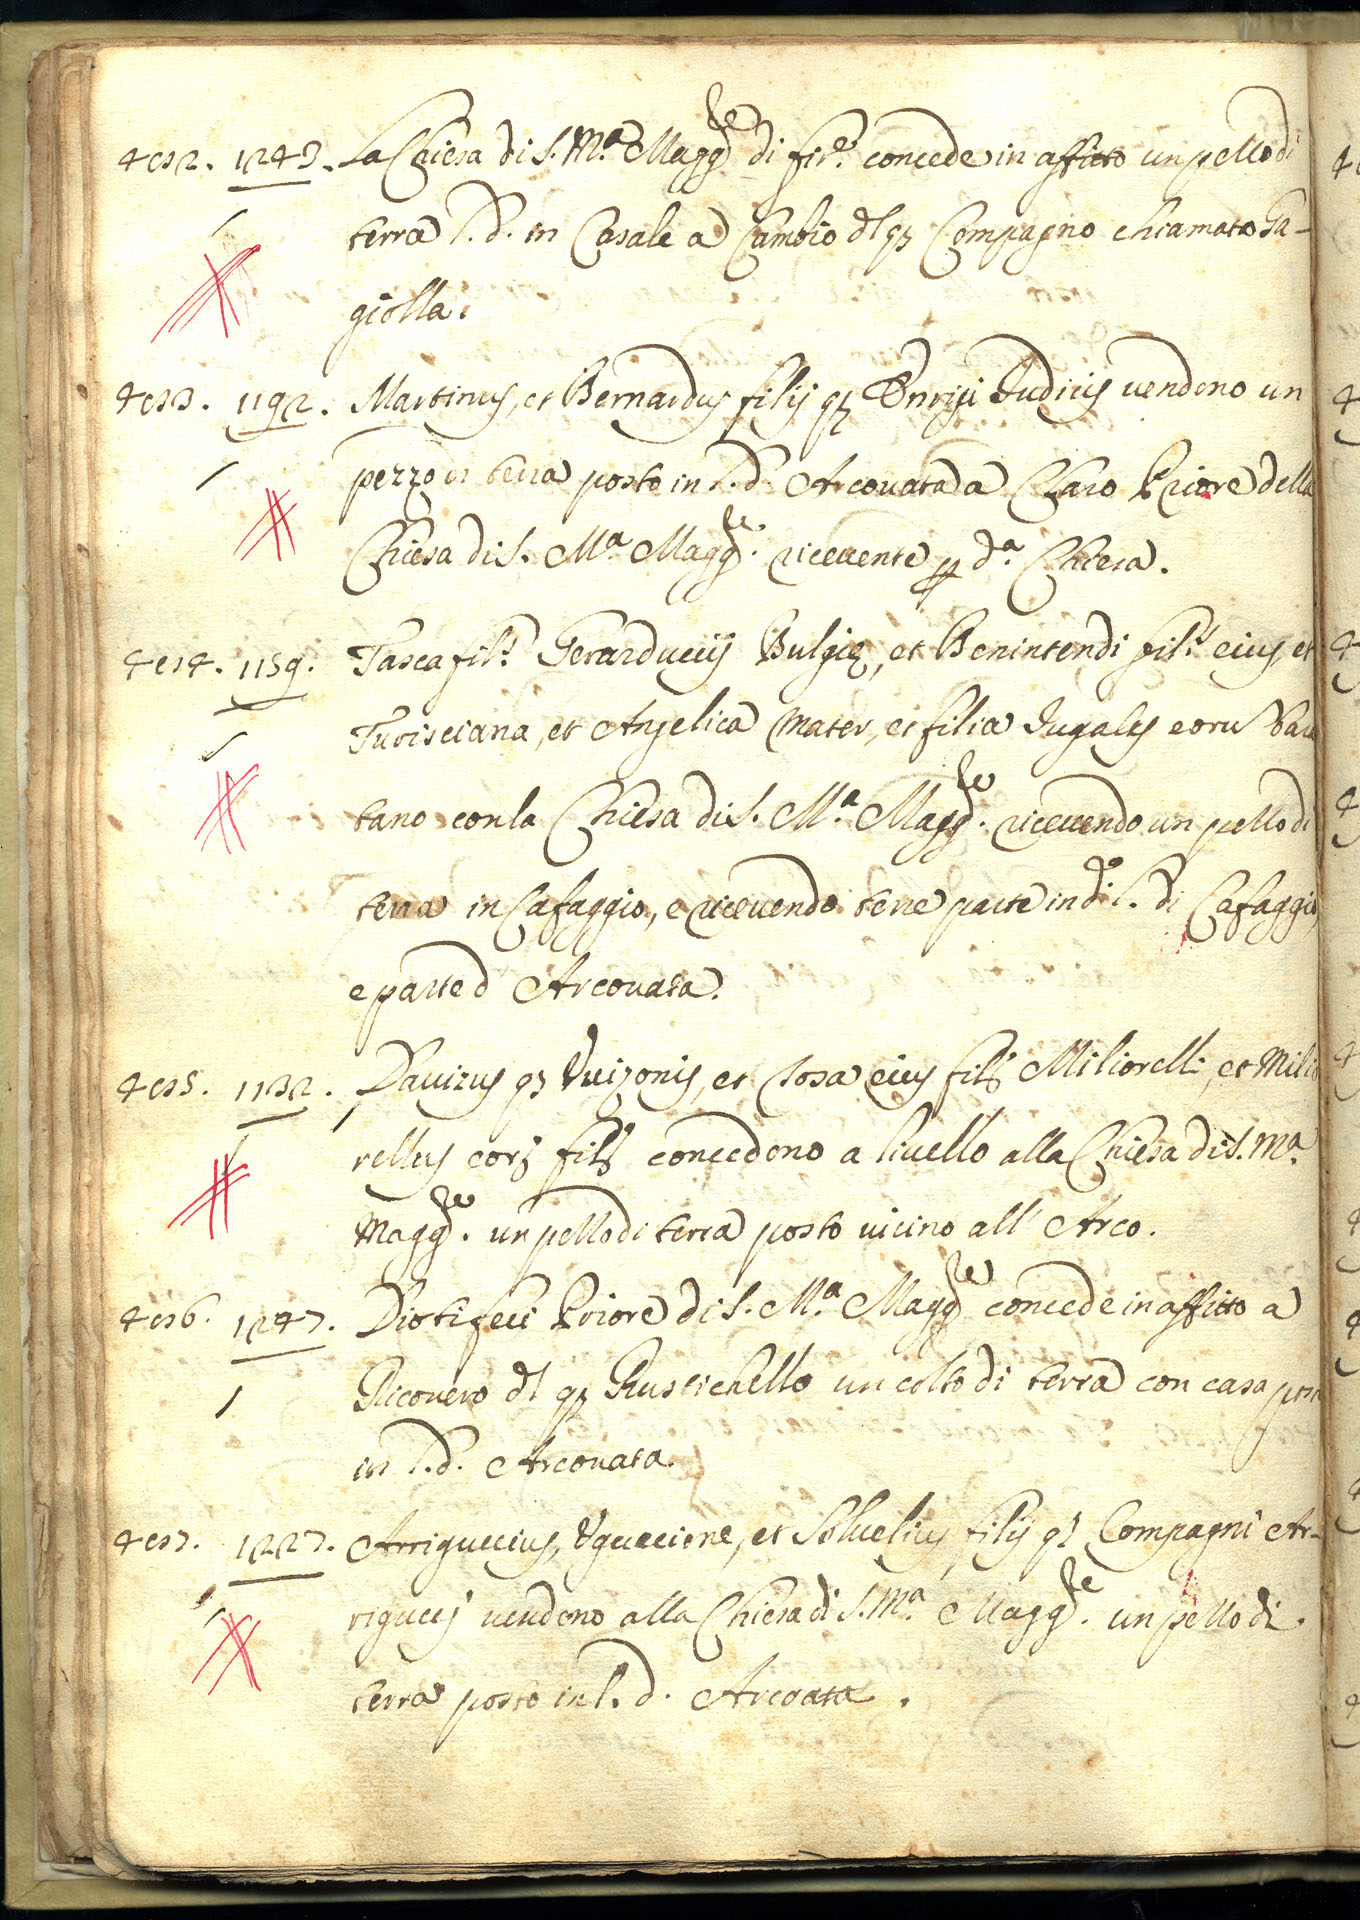 4052. 1243. La Chiesa di S. M.a Magg.re di fir.e concede in affitto un pezzo di
terra l. d. in Casale a Cambio dl qz Compagno chiamato Ga-
giolla.
4053. 1192. Martinus, et Bernardus filij qz Enrigi Judicis vendono un
pezzo di terra posto in l. d. Arcovata a Claro Priore della
Chiesa di S. M.a Magg.re ricevente p d.a Chiesa.
4054. 1159. Tasca fil.s Gerarduccij Bulgie, et Benintendi fil.s eius, et
Turisciana, et Angelica mater, et filia Jugales eoru
tano con la Chiesa di S. M.a Magg.re ricevendo un pezzo di
terra in Cafaggio, e ricevendo terre parte in d.o l. di Cafaggio,
e parte d Arcovata.
4055. 1132. Davizus qz Vuizonis, et Rosa eius fil. Miliorelli, et Milio
rellus eorz fil. concedono a livello alla Chiesa di S. M.a
Magg.re un pezzo di terra posto vicino all' Arco.
4056. 1247. Diotifeci Priore di S. M.a Magg.re concede in affitto a
Ricovero dl qz Rustichello un colto di terra con casa
in l. d. Arcovata.
4057. 1227. Arriguccius, Uguccione, et Solvelius, filij qz Compagni Ar-
rigucij vendono alla Chiesa di S. M.a Magg.re un pezzo di
terra posto in l. d. Arcoata.